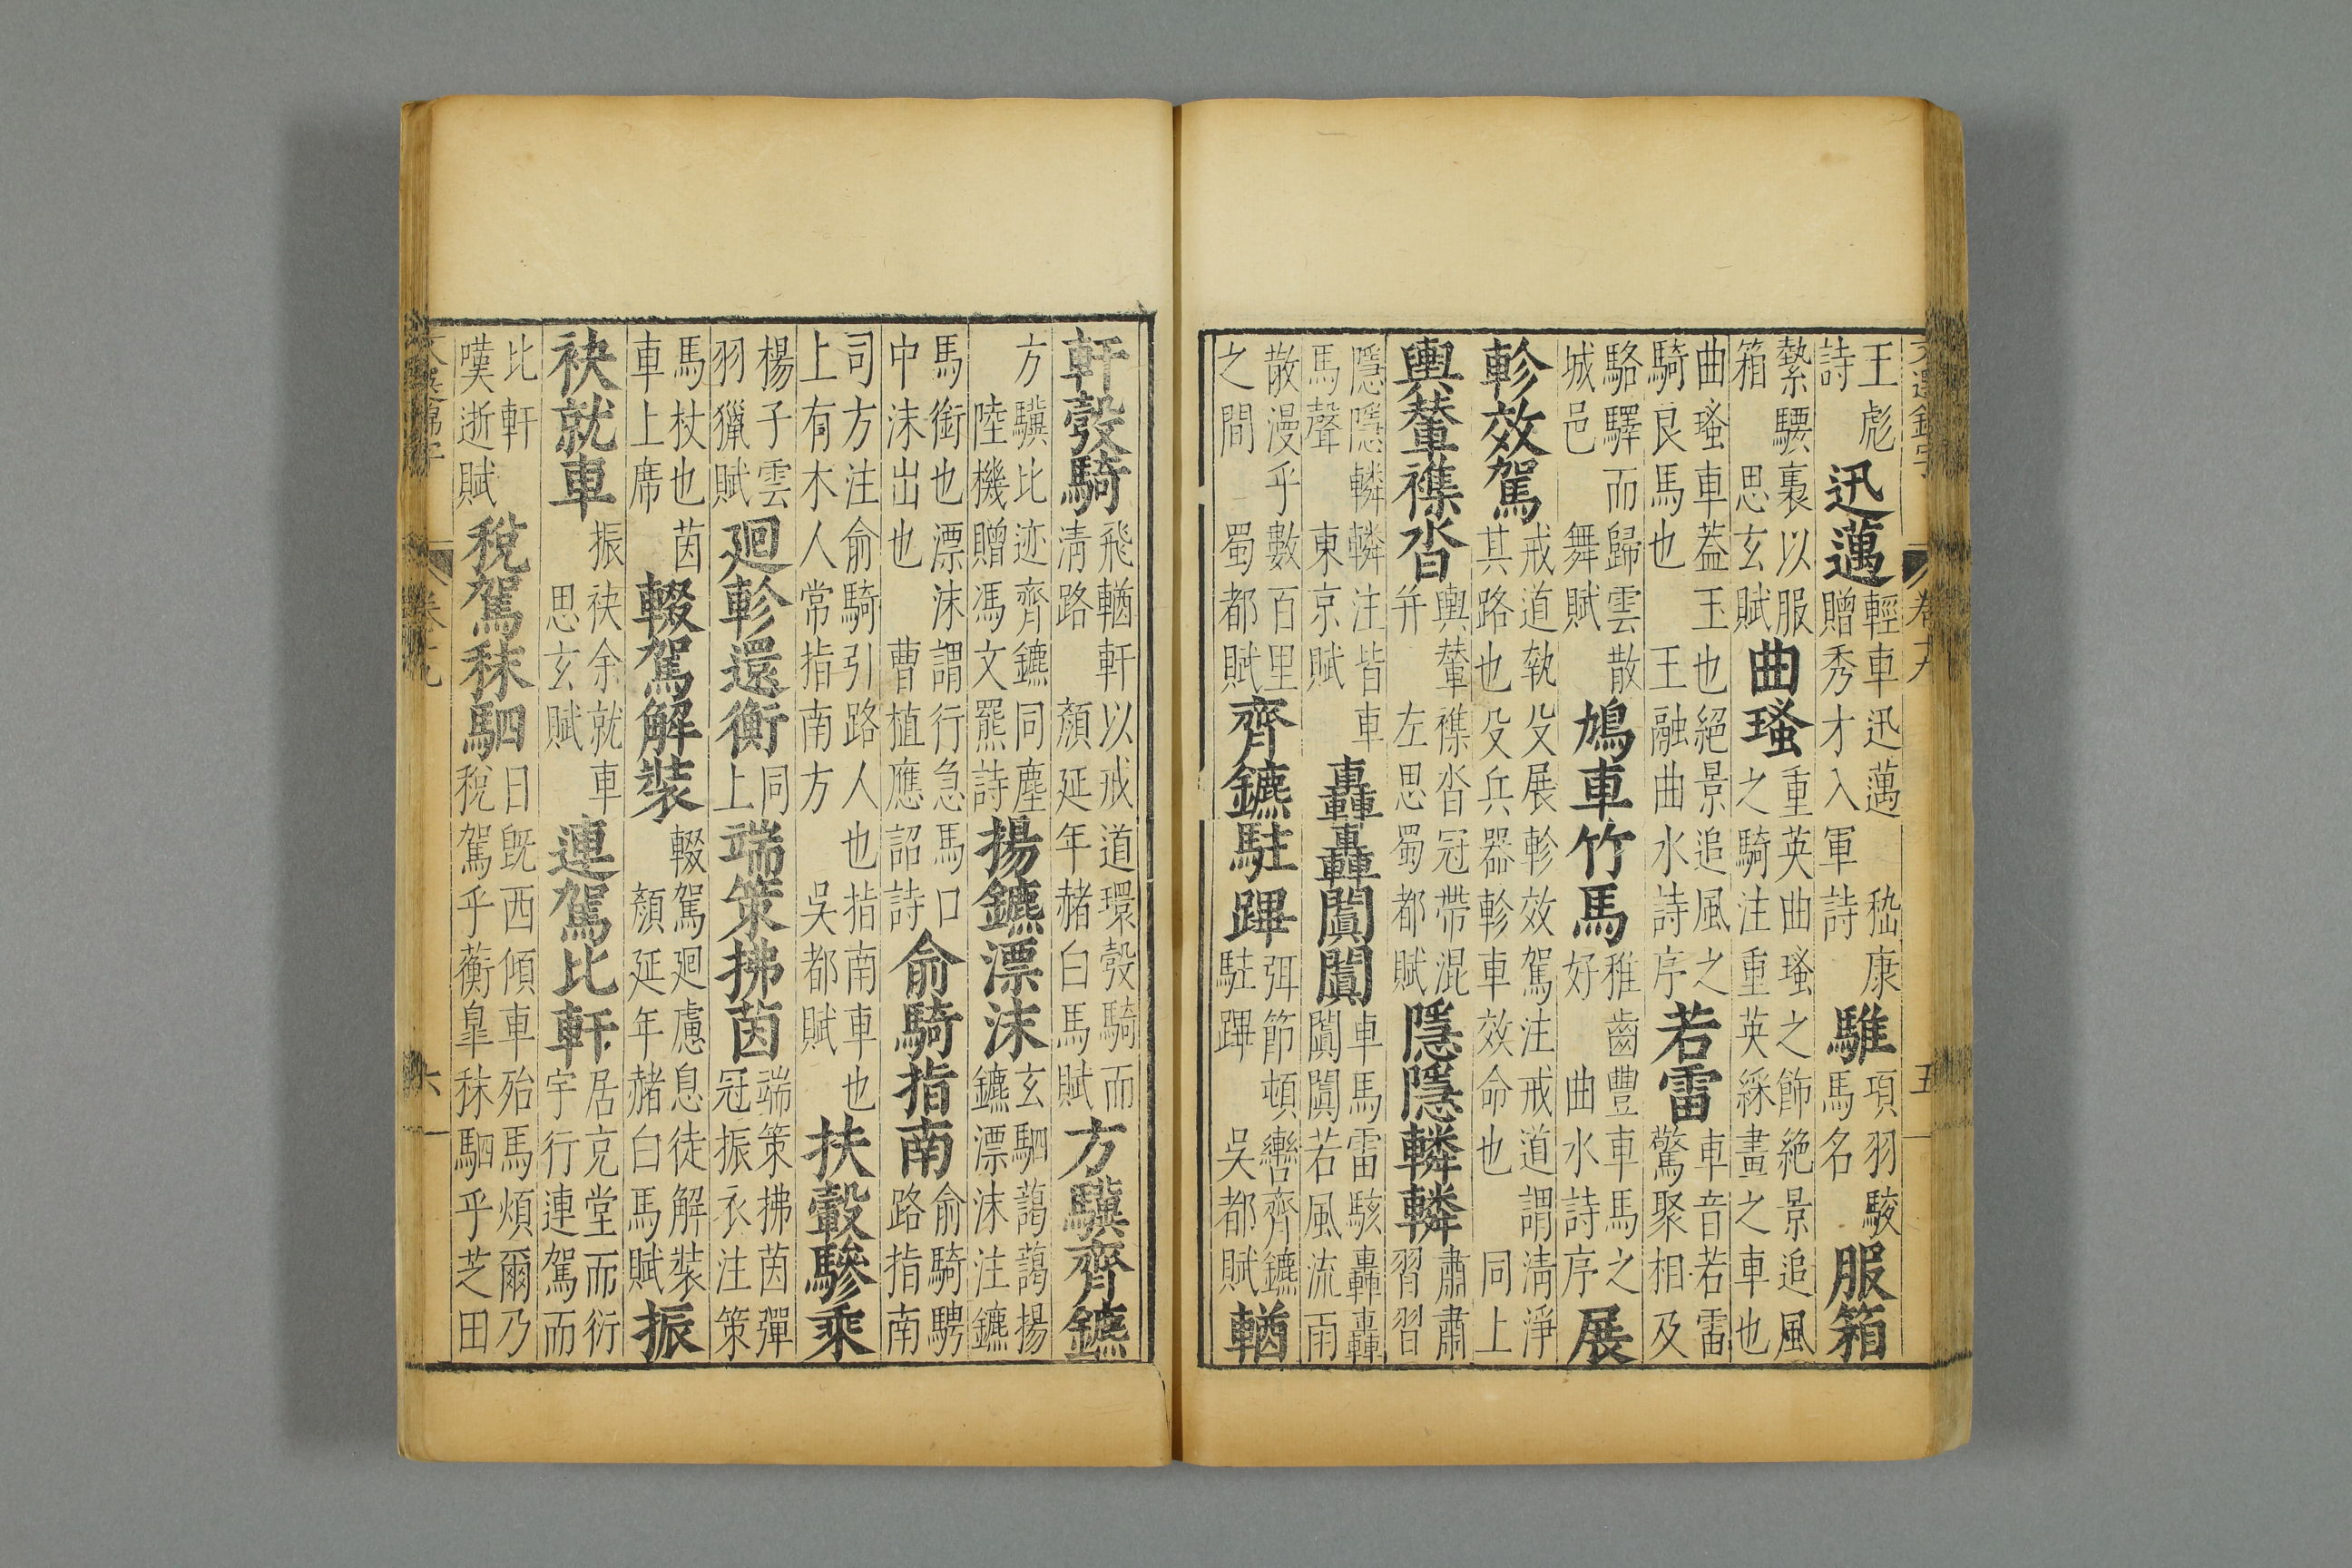 文選錦字 卷十九 五
王彪詩迅邁輕車迅邁嵇康贈秀才入軍詩騅項羽駿馬名服箱
縶騕褭以服箱思玄賦曲瑵重英曲瑵之飾絶景追風之騎注重英綵畫之車也
曲瑵車葢玉也絕景追風之騎良馬也王融曲水詩序若雷車音若雷驚聚相及
駱驛而歸雲散城邑舞賦鳩車竹馬稚齒豐車馬之好曲水詩序展
軫效駕戒道執殳展軫效駕注戒道謂清淨其路也殳兵器軫車效命也同上
輿輦襍沓輿輦襍沓冠帶混并左思蜀都賦隱隱轔轔肅肅習習
隱隱轔轔注皆車馬聲東京賦轟轟闐闐車馬雷駭轟轟闐闐若風流雨
散漫乎數百里之間蜀都賦齊鑣駐蹕弭節頓轡齊鑣駐蹕吳都賦輶
軒彀騎飛輶軒以戒道環彀騎而清路顏延年赭白馬賦方驥齊鑣
方驥比迹齊鑣同塵陸機贈馮文羆詩揚鑣漂沫玄駟藹藹揚鑣漂沫注鑣
馬銜也漂沫謂行急馬口中沫出也曹植應詔詩俞騎指南俞騎騁路指南
司方注俞騎引路人也指南車也上有木人常指南方吳都賦扶轂驂乘
楊子雲羽獵賦廻軫還衡同上端策拂茵端策拂茵彈冠振衣注策
馬杖也茵車上席輟駕解裝輟駕廻慮息徒解裝顏延年赭白馬賦振
袂就車振袂余就車思玄賦連駕比軒居充堂而衍宇行連駕而
比軒嘆逝賦稅駕秣駟日旣西傾車殆馬煩爾乃稅駕乎蘅皐秣駟乎芝田
文選錦字 卷十九 六